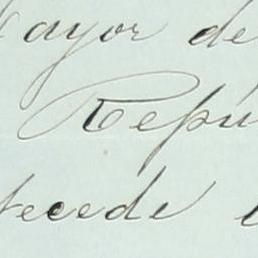 ayor de
Repú
ecede